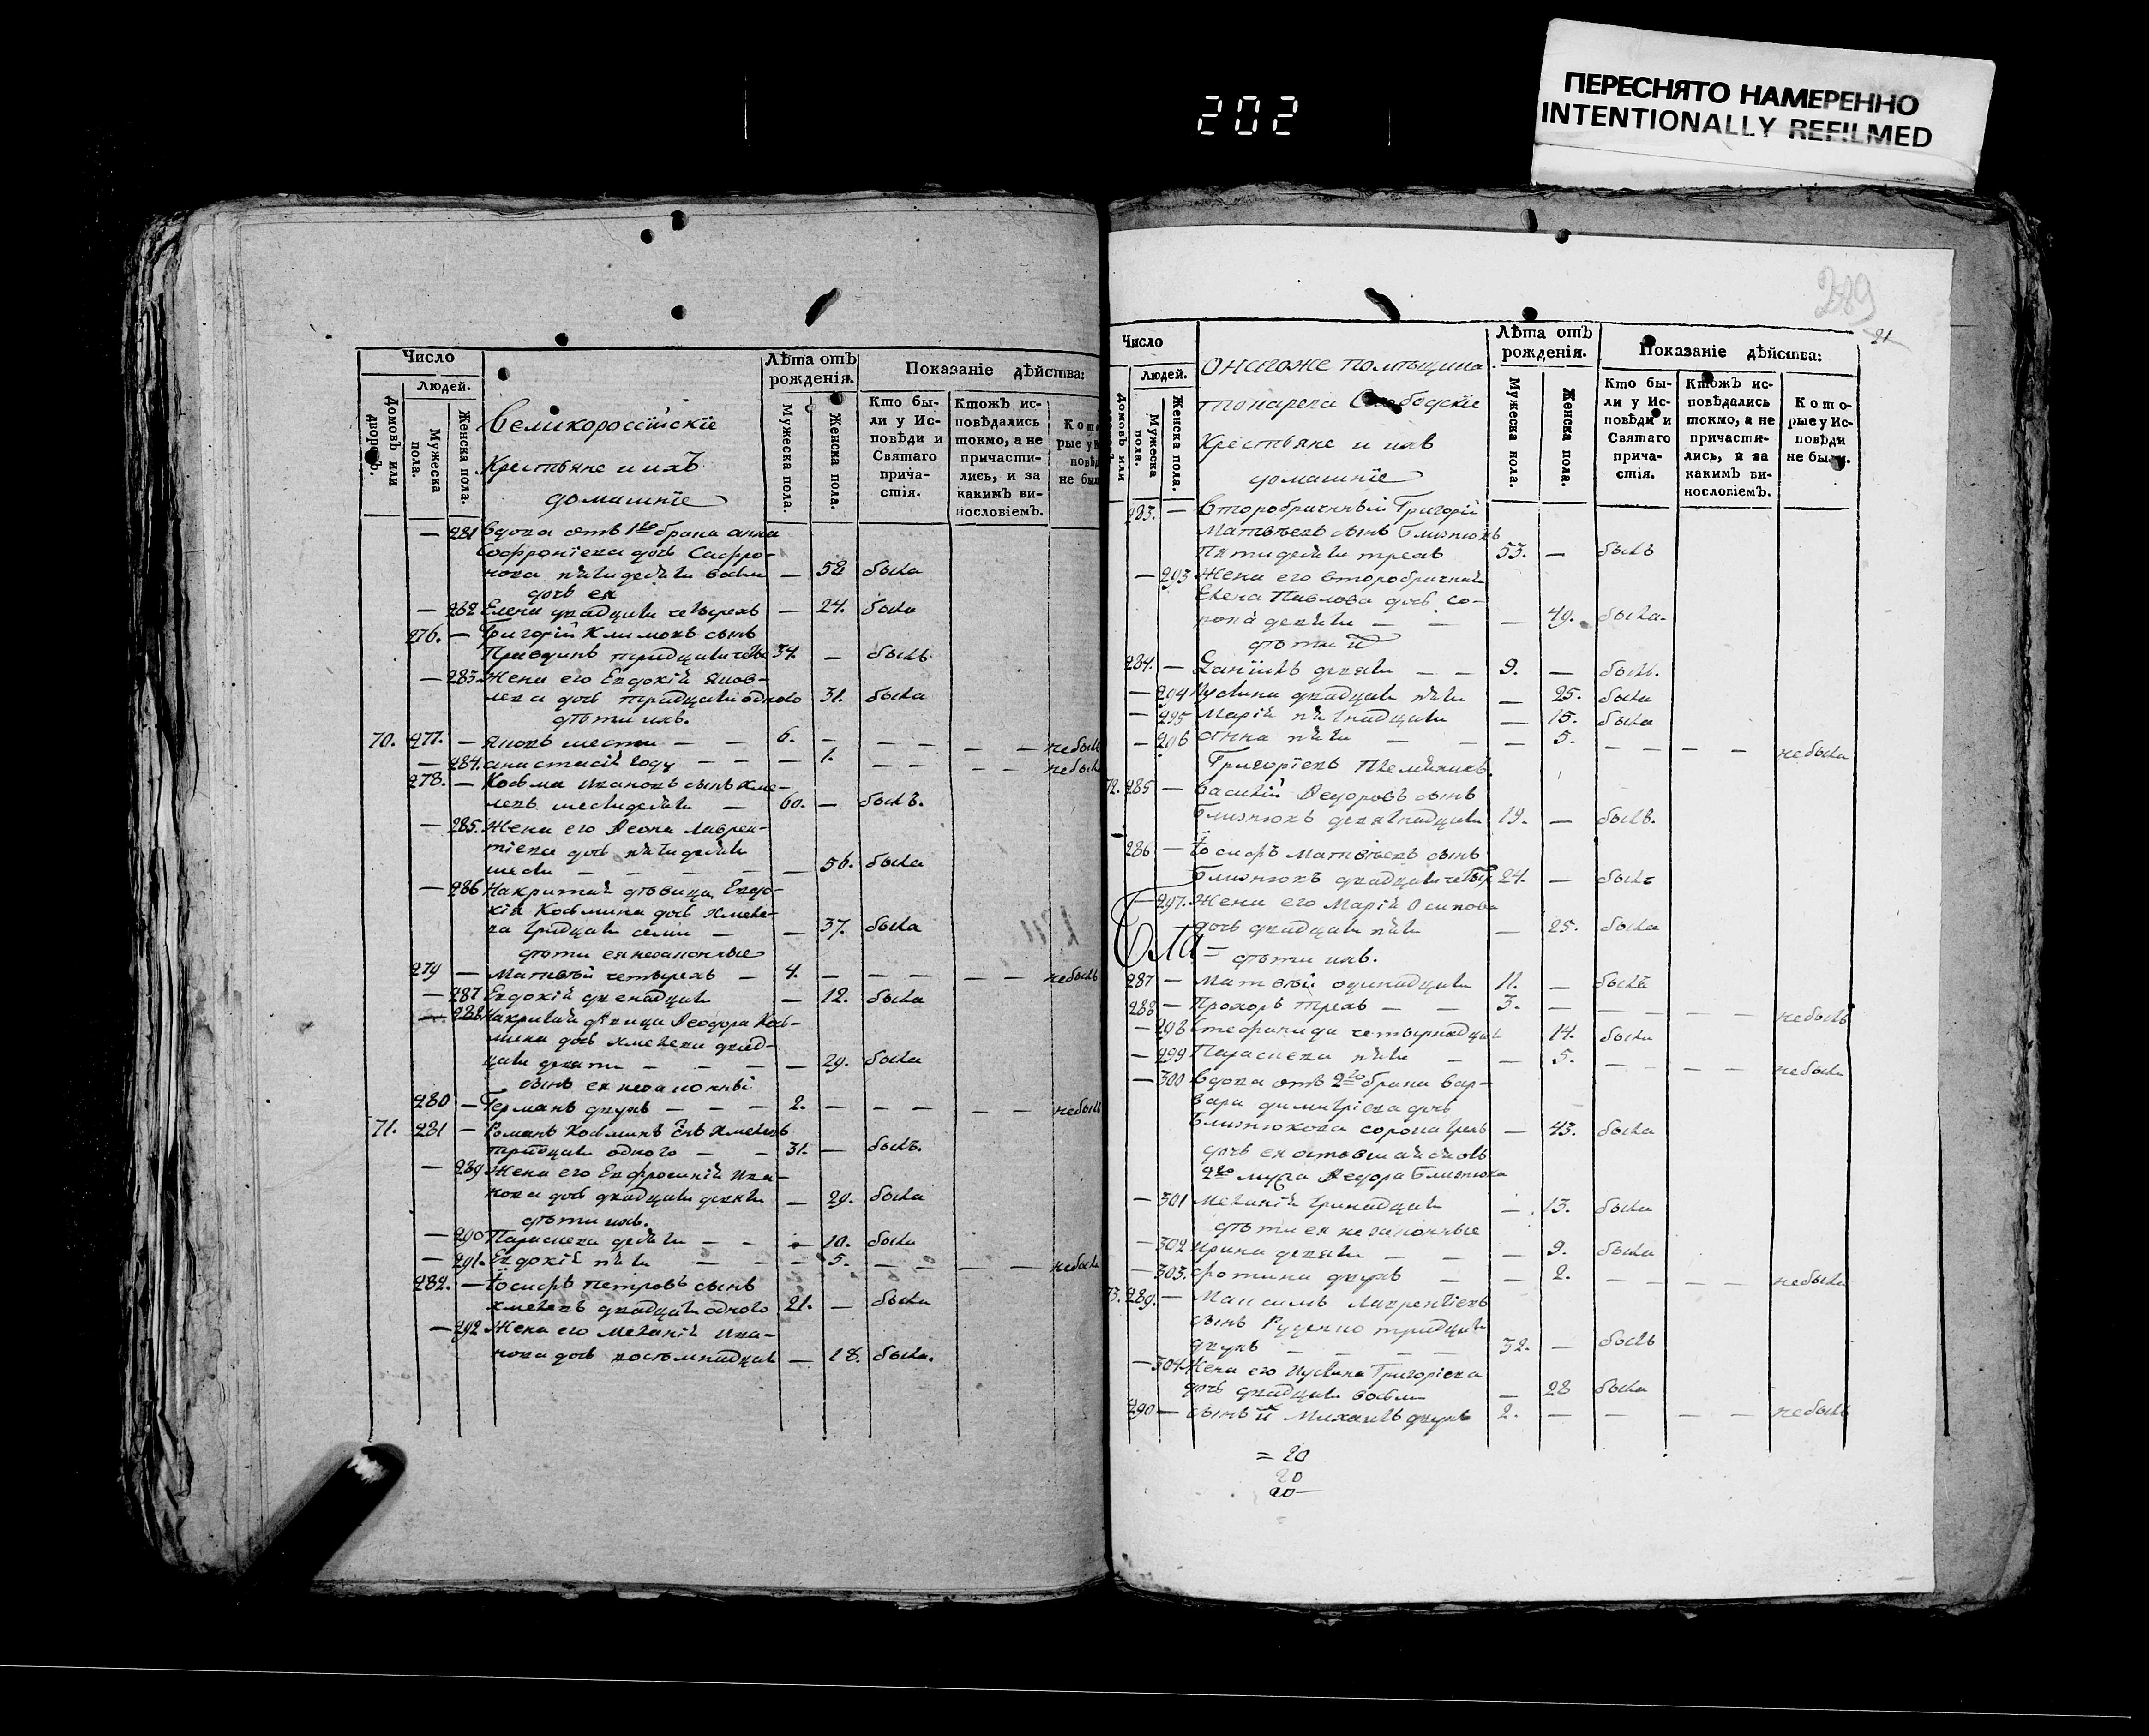 202
ПЕРЕСНЯТО НАМЕРЕННО
INTENTIONALLY REFILMED
Число
Людей.
Домовъ или дворовъ.
Мужеска пола.
Женска пола.
Великороссійскіе
Крестьяне и ихъ
домашніе
Лѣта отъ рожденія.
Мужеска пола.
Женска пола.
Показаніе дѣйства:
Кто были у Исповѣди и Святаго причастія.
Ктожъ исповѣдались токмо, а не причастились, и за какимъ винословіемъ.
— 281 вдова отъ 1го брака анна
Софроніева дочь Сафро-
нова пятидесяти восьми — 58 была
дочь ея
— 282 Елена двадцати четырехъ — 24. была
276. — Григорій Климовъ сынъ
тридцати 34. — былъ
— 283. Жена его Евдокія Яков-
лева дочь тридцати одного 31. была
дѣти ихъ.
70. 277. — Яковъ шести — — 6. — — — — — небылъ
— 284. анастасія году — — — 1. — — — — небыла
278. — Косьма Ивановъ сынъ Хме-
левъ шестидесяти — 60. — былъ.
— 285. Жена его Лаврен-
тіева дочь пятидесяти
шести — — — — — 56. была
— 286 Накрытая дѣвица Евдо-
кія Космина дочь Хмеле-
ва тридцати семи — — 37. была
дѣти ея незаконные
279 — Матвѣй четырехъ — 4. — — — — — небылъ
— 287 Евдокія двенадцати — 12. была
— 288 Накрытая дѣвица Ѳеодора Кось-
мина дочь Хмелева двад-
цати девяти — — — — 29. была
сынъ ея незаконный
280 — Германъ двухъ — — — 2. — — — — — небылъ
71. 281 — Романъ Косминъ снъ Хмелевъ
тридцати одного — — 31. — былъ.
— 289 Жена его Евфросинія Ива-
нова дочь двадцати девяти — 29. была
дѣти ихъ.
— 290 Параскева десяти — — — 10. была
— 291. Евдокія пяти — — — 5. — — — — небыла
282. — Іосифъ Петровъ сынъ
Хмелевъ двадцати одного 21. — былъ
— 292 Жена его Меланія Ива-
нова дочь восемнадцати — 18. была.
289
21
Число
Людей.
Домовъ или
Мужеска пола.
Женска пола.
Онагоже помѣщика
Слободскіе
Крестьяне и ихъ
домашніе
Лѣта отъ рожденія.
Мужеска пола.
Женска пола.
Показаніе дѣйства:
Кто были у Исповѣди и Святаго причастія.
Ктожъ исповѣдались токмо, а не причастились, и за какимъ винословіемъ.
Которые у Исповѣди не были.
283. — Второбрачный Григорій
Матвѣевъ сынъ Близнюкъ
пятидесяти трехъ 53. — былъ
— 293 Жена его второбрачная
Елена Павлова дочь со-
рока девяти — — — 49. была.
дѣти ихъ
284. — Даніилъ девяти — — 9. — былъ.
— 294 Иустина двадцати пяти — 25. была
— 295 Марія пятнадцати — 15. была
— 296 анна пяти — — — 5. — — — — небыла
Григоріевъ племянникъ.
72. 285 — василій Ѳедоровъ сынъ
Близнюкъ девятнадцати 19. — былъ.
286 — Іосифъ Матвѣевъ сынъ
Близнюкъ двадцати четыр 24. — былъ
— 297. Жена его Марія Осипова
дочь двадцати пяти — 25. была
дѣти ихъ.
287 — Матвѣй одинадцати 11. — былъ
288 — Прохоръ трехъ — — 3. — — — — — небылъ
— 298 Стефанида четырнадцати 14. была
— 299 Параскева пяти — — 5. — — — — небыла
— 300 вдова отъ 2го брака вар-
вара димитріева дочь
Близнюкова сорока трехъ — 43. была
дочь ея оставшаяся отъ
2го мужа Ѳедора Близнюка
— 301 Меланія тринадцати — 13. была
дѣти ея незаконные
— 302 ирина девяти — — — 9. была
— 303. фотина двухъ — — 2. — — — — небыла
73. 289. — Максимъ Лаврентіевъ
сынъ Руденко тридцати
двухъ — — — — 32. — былъ
— 304 Жена его Иустина Григоріева
дочь двадцати восьми — 28 была
290 — сынъ ихъ Михаилъ двухъ 2. — — — — небылъ
= 20
20
20